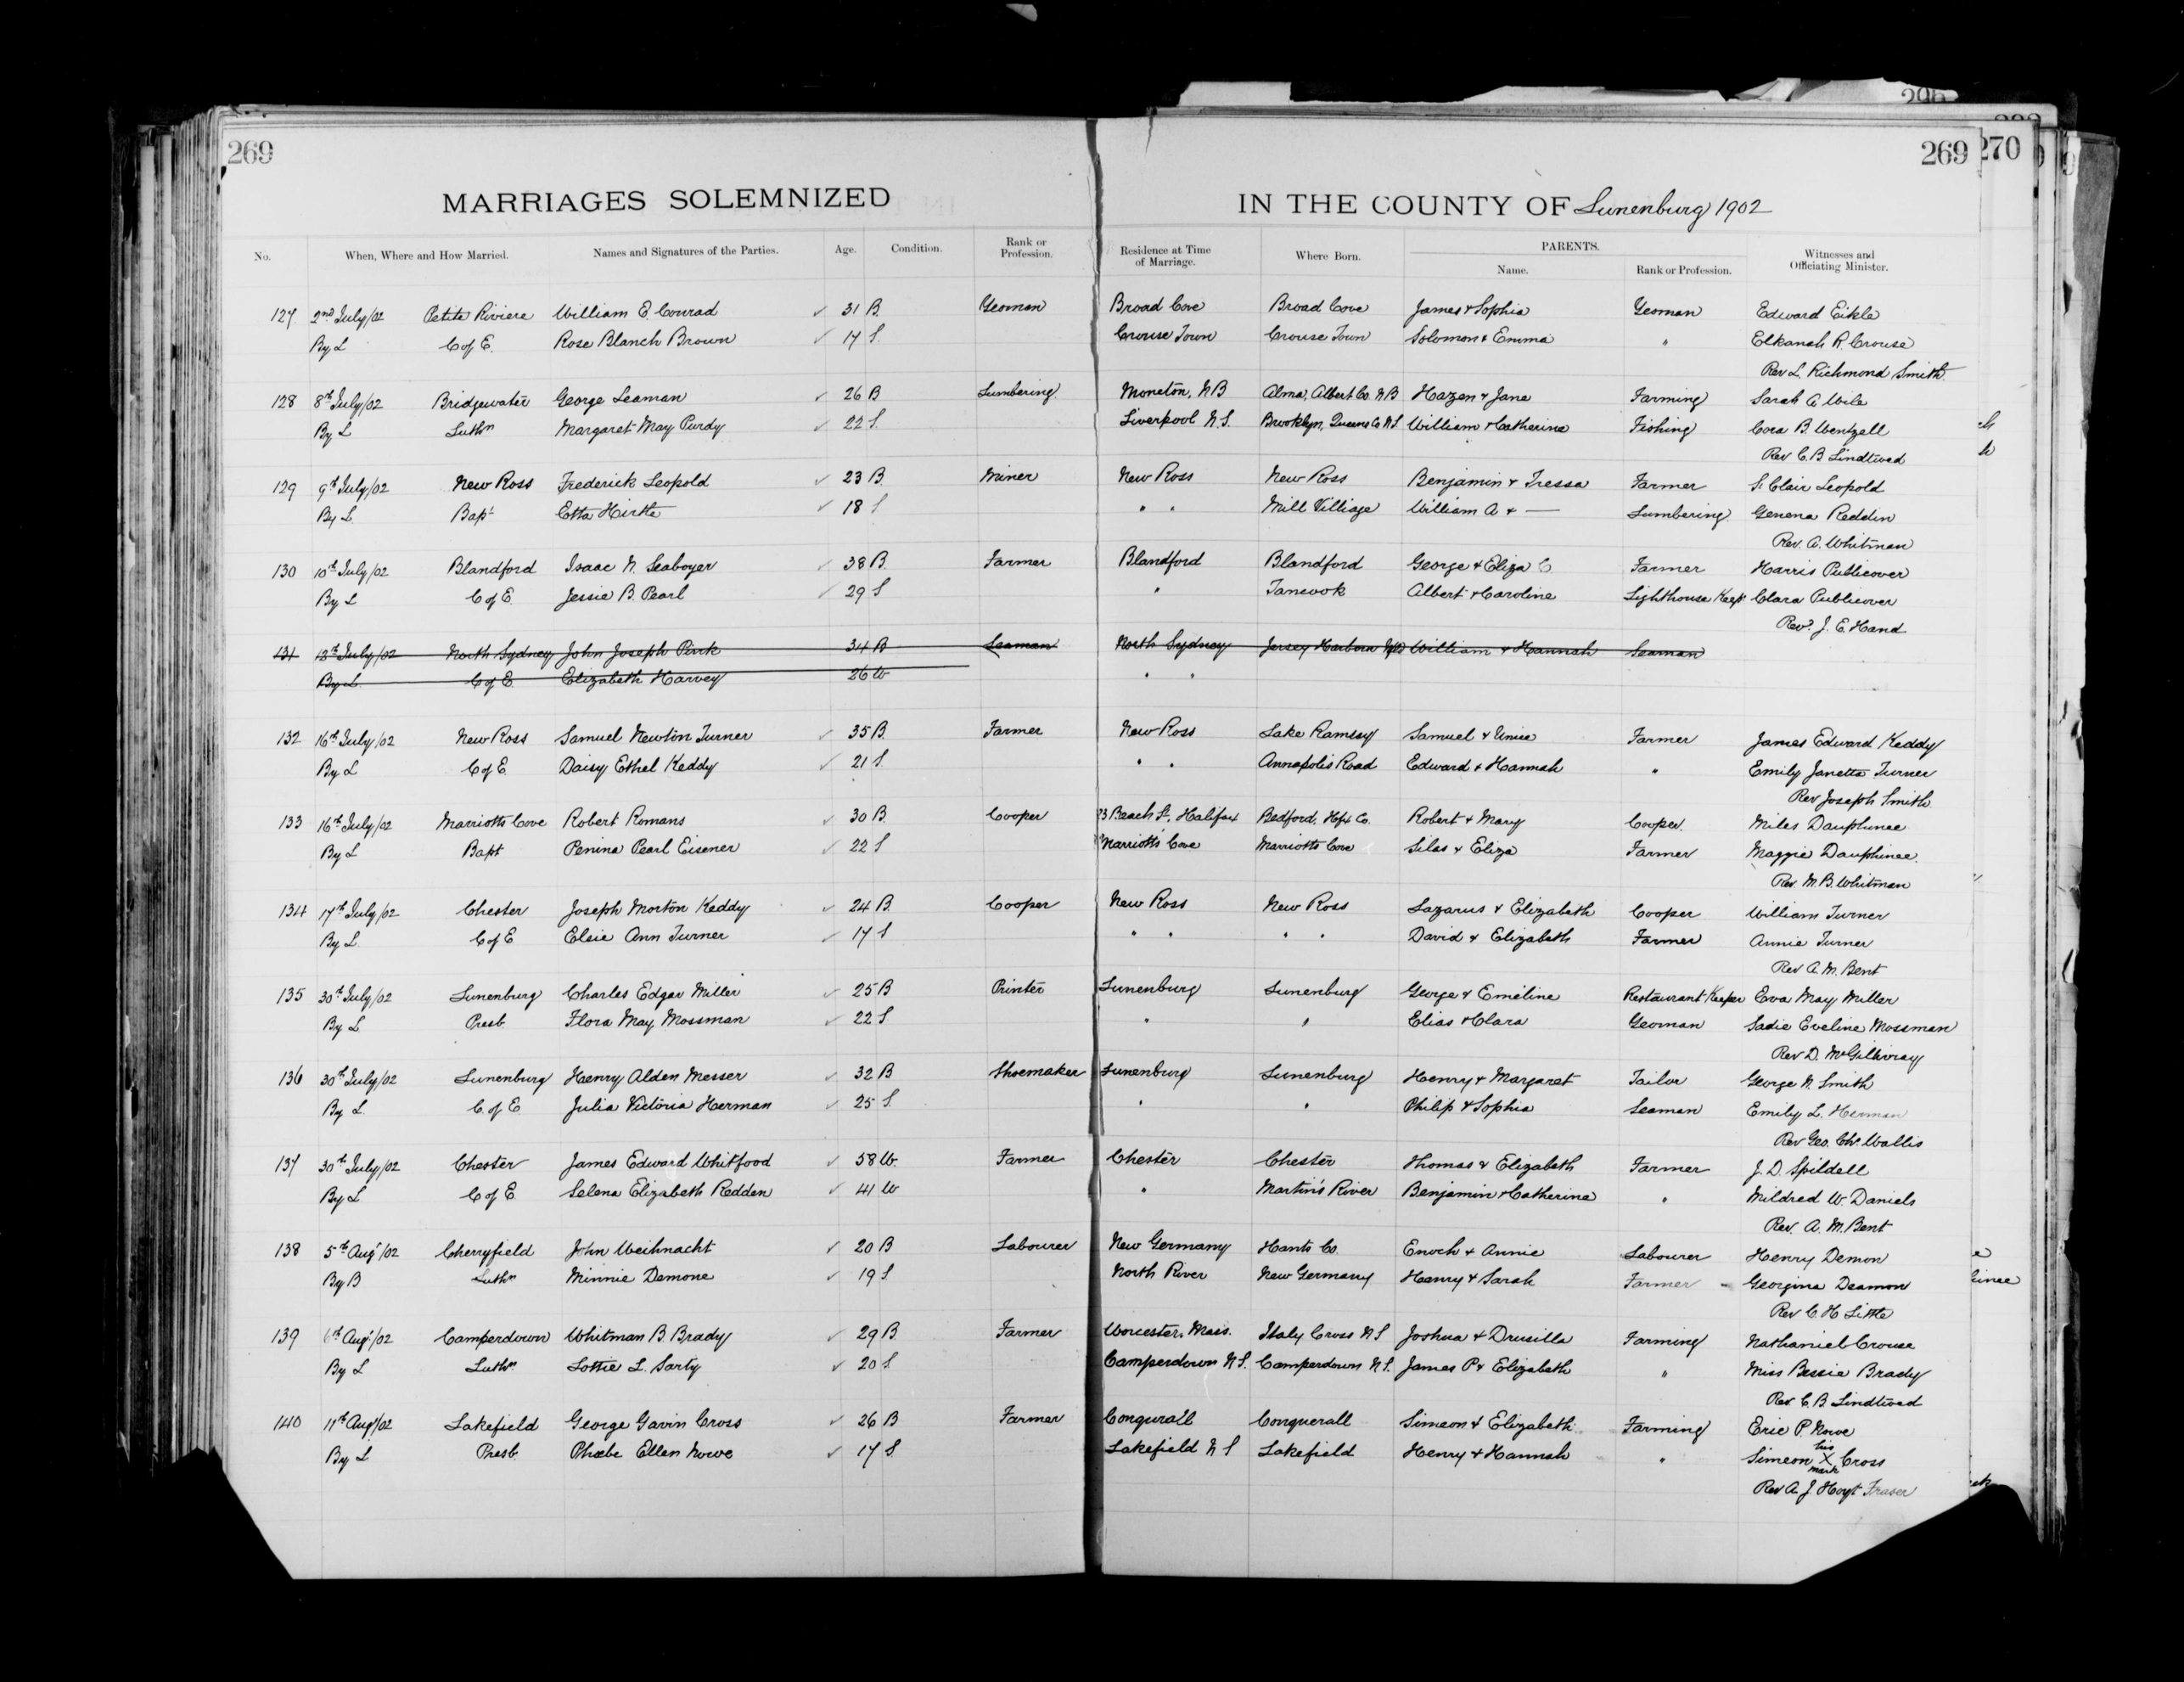 296
269
269 270
MARRIAGES SOLEMNIZED IN THE COUNTY OF Lunenburg 1902
No. When, Where and How Married. Names and Signatures of the Parties. Age. Condition. Rank or Profession. Residence at Time of Marriage. Where Born. PARENTS. Name. Rank or Profession. Witnesses and Officiating Minister.
127 2nd July/02 Petite Riviere William E. Conrad ✓ 31 B. Yeoman Broad Cove Broad Cove James & Sophia Yeoman Edward Eikle
By L C of E. Rose Blanch Brown ✓ 17 S. Crouse Town Crouse Town Solomon & Emma " Elkanah R. Crouse
Rev L. Richmond Smith
128 8th July/02 Bridgewater George Leaman ✓ 26 B Lumbering Moncton, N B Alma, Albert Co. N B Hazen & Jane Farming Sarah A Wile
By L Luthn Margaret May Purdy ✓ 22 S. Liverpool N.S. Brooklyn, Queens Co N.S. William & Catherine Fishing Cora B. Wentzell
Rev C. B Lindtwed
129 9th July/02 New Ross Frederick Leopold ✓ 23 B. Miner New Ross New Ross Benjamin & Tressa Farmer S. Clair Leopold
By L. Bapt Etta Hirtle ✓ 18 S " " Mill Villiage William A & — Lumbering Genena Redden
Rev. A. Whitman
130 10th July/02 Blandford Isaac N. Seaboyer ✓ 38 B. Farmer Blandford Blandford George & Eliza C Farmer Harris Publicover
By L C of E. Jessie B. Pearl ✓ 29 S " Tancook Albert & Caroline Lighthouse Keepr Clara Publicover
Revd. J. E. Hand
131 12th July/02 North Sydney John Joseph Pink 34 B Seaman North Sydney Jersey Harbour Nfld William & Hannah Seaman
By L C of E. Elizabeth Harvey 26 W " "
132 16th July/02 New Ross Samuel Newton Turner ✓ 35 B. Farmer New Ross Lake Ramsey Samuel & Unice Farmer James Edward Keddy
By L C of E. Daisy Ethel Keddy ✓ 21 S. " " Annapolis Road Edward & Hannah " Emily Janetta Turner
Rev Joseph Smith
133 16th July/02 Marriotts Cove Robert Romans ✓ 30 B. Cooper 23 Beach St, Halifax Bedford, Hfx Co. Robert & Mary Cooper. Miles Dauphinee
By L Bapt Penina Pearl Eisener ✓ 22 S Marriotts Cove Marriotts Cove Silas & Eliza Farmer Maggie Dauphinee.
Rev. M. B. Whitman
134 17th July/02 Chester Joseph Morton Keddy ✓ 24 B. Cooper New Ross New Ross Lazarus & Elizabeth Cooper William Turner
By L. C of E Elsie Ann Turner ✓ 17 S " " " " David & Elizabeth Farmer Annie Turner
Rev A. M. Bent
135 30th July/02 Lunenburg Charles Edgar Miller ✓ 25 B Printer Lunenburg Lunenburg George & Emeline Restaurant Keeper Eva May Miller
By L Presb Flora May Mossman ✓ 22 S " " Elias & Clara Yeoman Sadie Eveline Mossman
Rev D. McGillivray
136 30th July/02 Lunenburg Henry Alden Messer ✓ 32 B Shoemaker Lunenburg Lunenburg Henry & Margaret Tailor George N. Smith
By L. C. of E Julia Victoria Herman ✓ 25 S. " " Philip & Sophia Seaman Emily L. Herman
Rev Geo. Chr. Wallis
137 30th July/02 Chester James Edward Whitford ✓ 58 W. Farmer Chester Chester Thomas & Elizabeth Farmer J. D. Spildell
By L C of E Selena Elizabeth Redden ✓ 41 W " Martin's River Benjamin & Catherine " Mildred W. Daniels
Rev. A. M. Bent
138 5th Augt/02 Cherryfield John Weihnacht ✓ 20 B Labourer New Germany Hants Co. Enoch & Annie Labourer Henry Demon
By B Luthn Minnie Demone ✓ 19 S North River New Germany Henry & Sarah Farmer Georgina Deamon
Rev C. H Little
139 6th Augt/02 Camperdown Whitman B. Brady ✓ 29 B Farmer Worcester, Mass. Italy Cross N S Joshua & Drusilla Farming Nathaniel Crouse
By L Luthn Lottie L. Sarty ✓ 20 S. Camperdown N S. Camperdown N S. James P & Elizabeth " Miss Bessie Brady
Rev. C. B Lindtwed
140 11th Augt/02 Lakefield George Gavin Cross ✓ 26 B Farmer Conqurall Conquerall Simeon & Elizabeth Farming Eric P. Nowe
By L Presb. Phebe Ellen Nowe ✓ 17 S. Lakefield N S Lakefield Henry & Hannah " Simeon his X mark Cross
Rev A. J. Hoyt Fraser